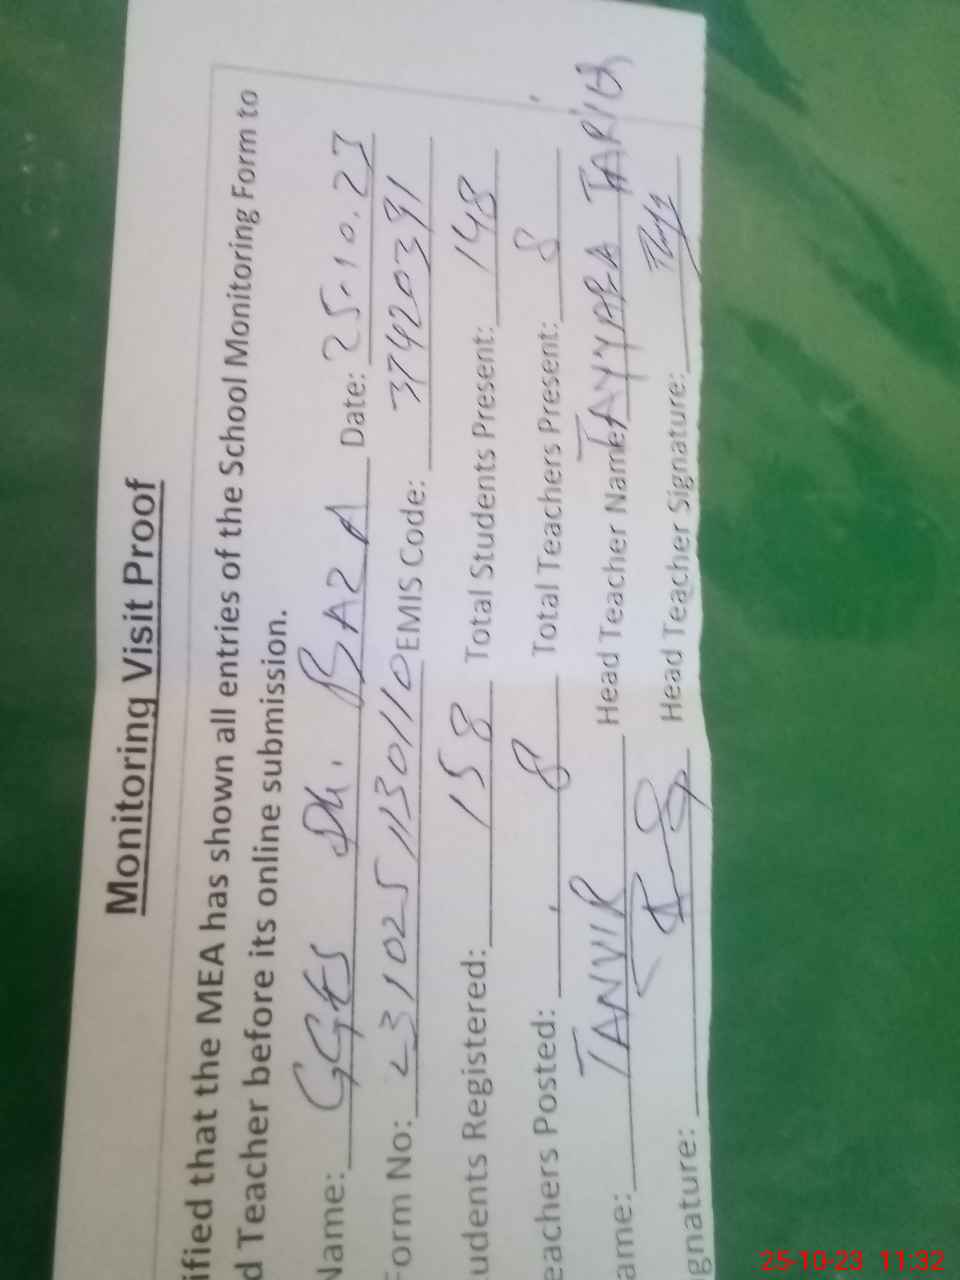 Monitoring Visit Proof
ified that the MEA has shown all entries of the School Monitoring Form to
d Teacher before its online submission.
Name: GGES Dk. BAZA Date: 25.10.23
Form No: 23102511301110 EMIS Code: 37420391
udents Registered: 158 Total Students Present: 148
eachers Posted: 8 Total Teachers Present: 8
ame: TANVIR Head Teacher Name: TAYYABA TARIQ
gnature: Head Teacher Signature:
25-10-23 11:32